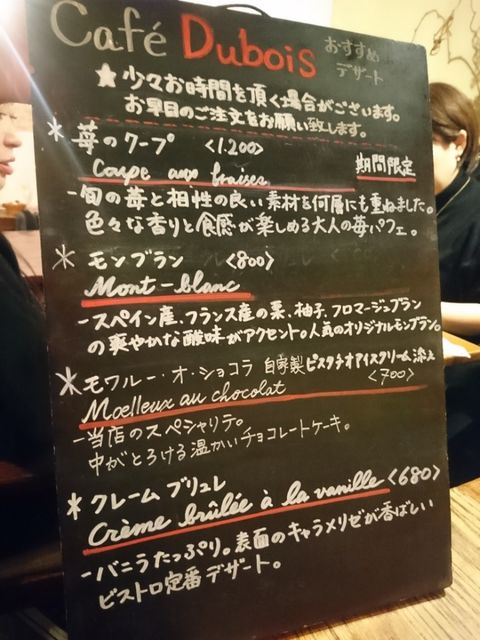 Café Dubois おすすめ
デザート
★少々お時間を頂く場合がございます。
お早目のご注文をお願い致します。
* 苺のクープ <1.200>
Coupe aux fraises 期間限定
-旬の苺と相性の良い素材を何層にも重ねました。
色々な香りと食感が楽しめる大人の苺パフェ。
* モンブラン <800>
Mont-blanc
-スペイン産、フランス産の栗、柚子、フロマージュブラン
の爽やかな酸味がアクセント。人気のオリジナルモンブラン。
* モワルー・オ・ショコラ 自家製ピスタチオアイスクリーム添え
Moelleux au chocolat <700>
-当店のスペシャリテ。
中がとろける温かいチョコレートケーキ。
* クレーム ブリュレ
Crème brûlée à la vanille <680>
-バニラたっぷり。表面のキャラメリゼが香ばしい
ビストロ定番デザート。